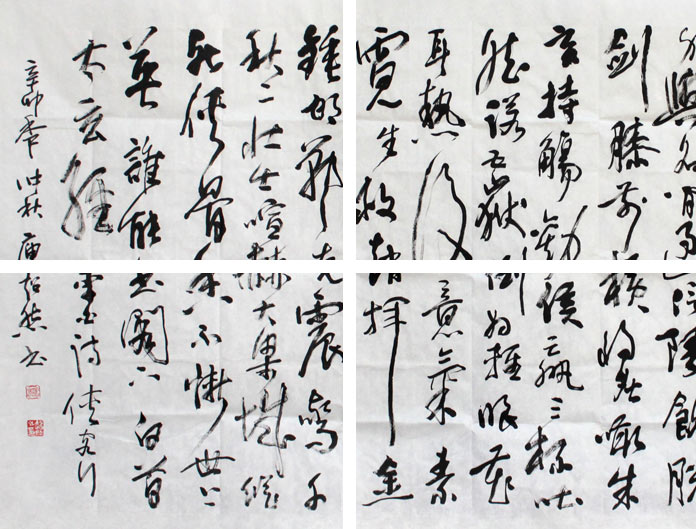 與名閒過信陵飲脫
劍膝前橫將炙啖朱
亥持觴勸侯嬴三杯吐
然諾五嶽倒為輕眼花
耳熱後意氣素
霓生救趙揮金
錘邯鄲先震驚千
秋二壯士喧赫大梁城縱
死俠骨香不慚世上
英誰能書閣下白首
太玄經李白詩俠客行
辛卯年仲秋 書